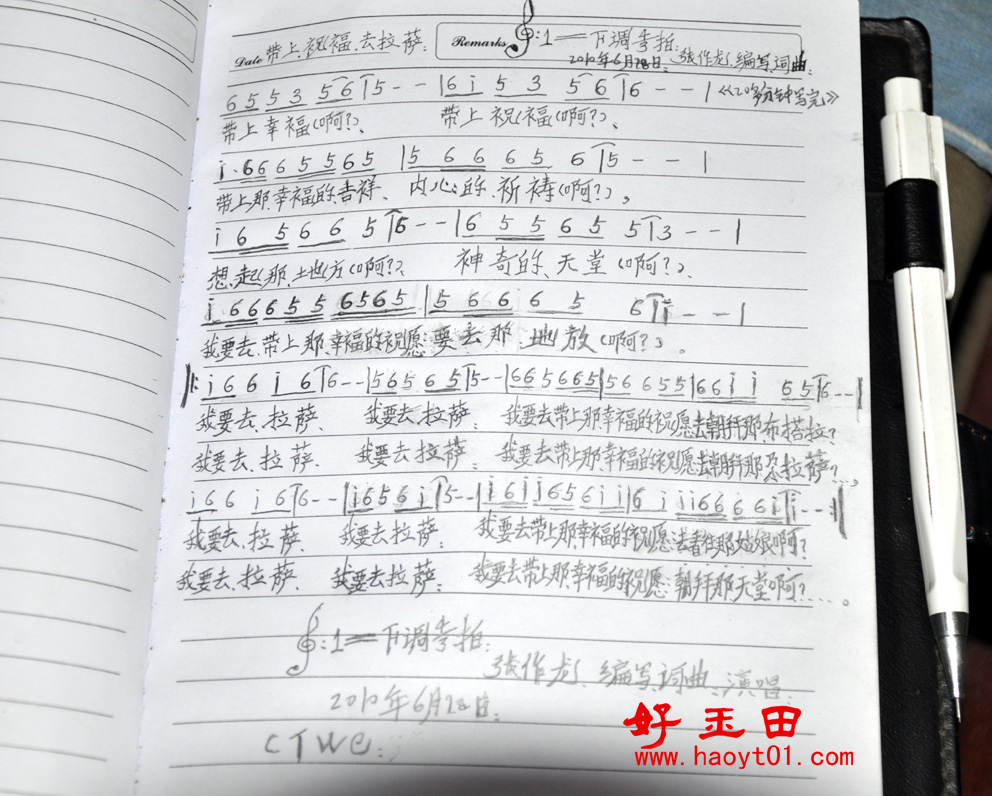 Date 带上祝福去拉萨: Remarks :1=下调李拍:
2010年6月28日:张作彪、编写词曲:
6 5 5 3 5 6 | 5 - - | 6 i 5 3 5 6 | 6 - - | 《20多分钟写完》
带上幸福(啊?)、 带上祝福(啊?)、
i·6 6 6 5 5 6 5 | 5 6 6 6 5 6 | 5 - - |
带上那幸福的吉祥、内心的祈祷(啊?)。
i 6 5 6 6 5 | 6 - - | 6 5 5 6 5 5 | 3 - - |
想起那地方(啊?)、 神奇的天堂(啊?)、
i·6 6 6 5 5 6 5 6 5 | 5 6 6 6 5 6 | i - - |
我要去带上那幸福的祝愿:要去那地放(啊?)。
‖: i 6 6 i 6 | 6 - - | 5 6 5 6 5 | 5 - - | 6 6 5 6 6 5 | 5 6 6 5 5 | 6 6 i i 6 5 | 6 - - |
我要去、拉萨 我要去、拉萨 我要去带上那幸福的祝愿去朝拜那布搭拉?
我要去、拉萨、 我要去拉萨: 我要去带上那幸福的祝愿:去朝拜那 拉萨?...,
i 6 6 i 6 | 6 - - | i 6 5 6 i | 5 - - | i 6 i i 6 5 6 i i | 6 i i i 6 6 6 6 i | i - - :‖
我要去、拉萨、 我要去、拉萨: 我要去带上那幸福的祝愿:去看往那姑娘啊?
我要去、拉萨、 我要去拉萨: 我要去带上那幸福的祝愿:朝拜那天堂啊?....。
:1=下调李拍:
张作彪、编写词曲、演唱:
2010年6月28日:
CTWC:
好玉田
www.haoyt01.com